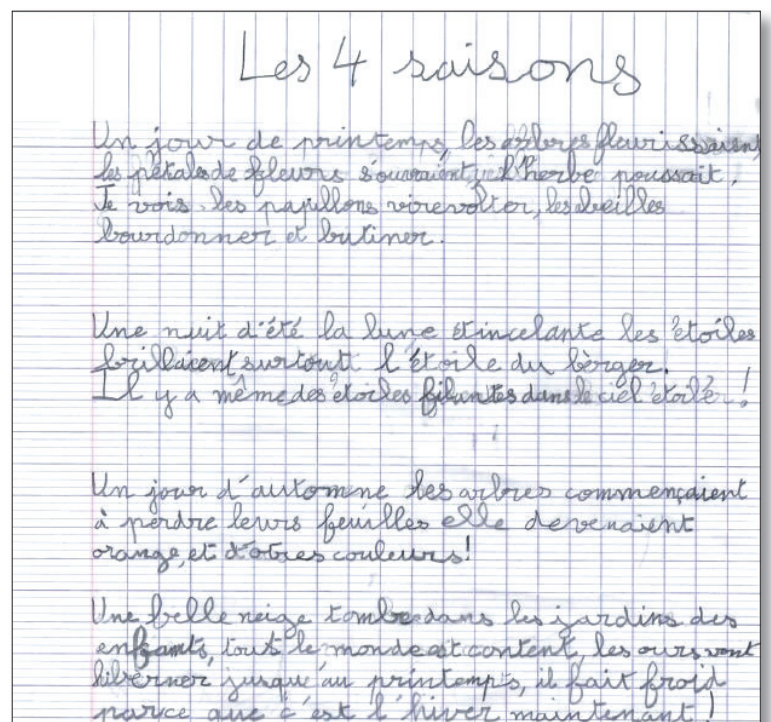 Les 4 saisons
Un jour de printemps, les arbres fleurissaient
les pétales de fleurs s'ouvraient, l'herbe poussait.
Je vois les papillons virevolter, les abeilles
bourdonner et butiner.
Une nuit d'été la lune étincelante les étoiles
brillaient surtout l'étoile du bèrger.
Il y a même des étoiles filantes dans le ciel étoilér !
Un jour d'automne les arbres commençaient
à perdre leurs feuilles elle devenaient
orange, et d'otres couleurs !
Une belle neige tombe dans les jardins des
enfants, tout le monde est content, les ours vont
hiberner jusqu'au printemps, il fait froid
parce que c'est l'hiver maintenant !